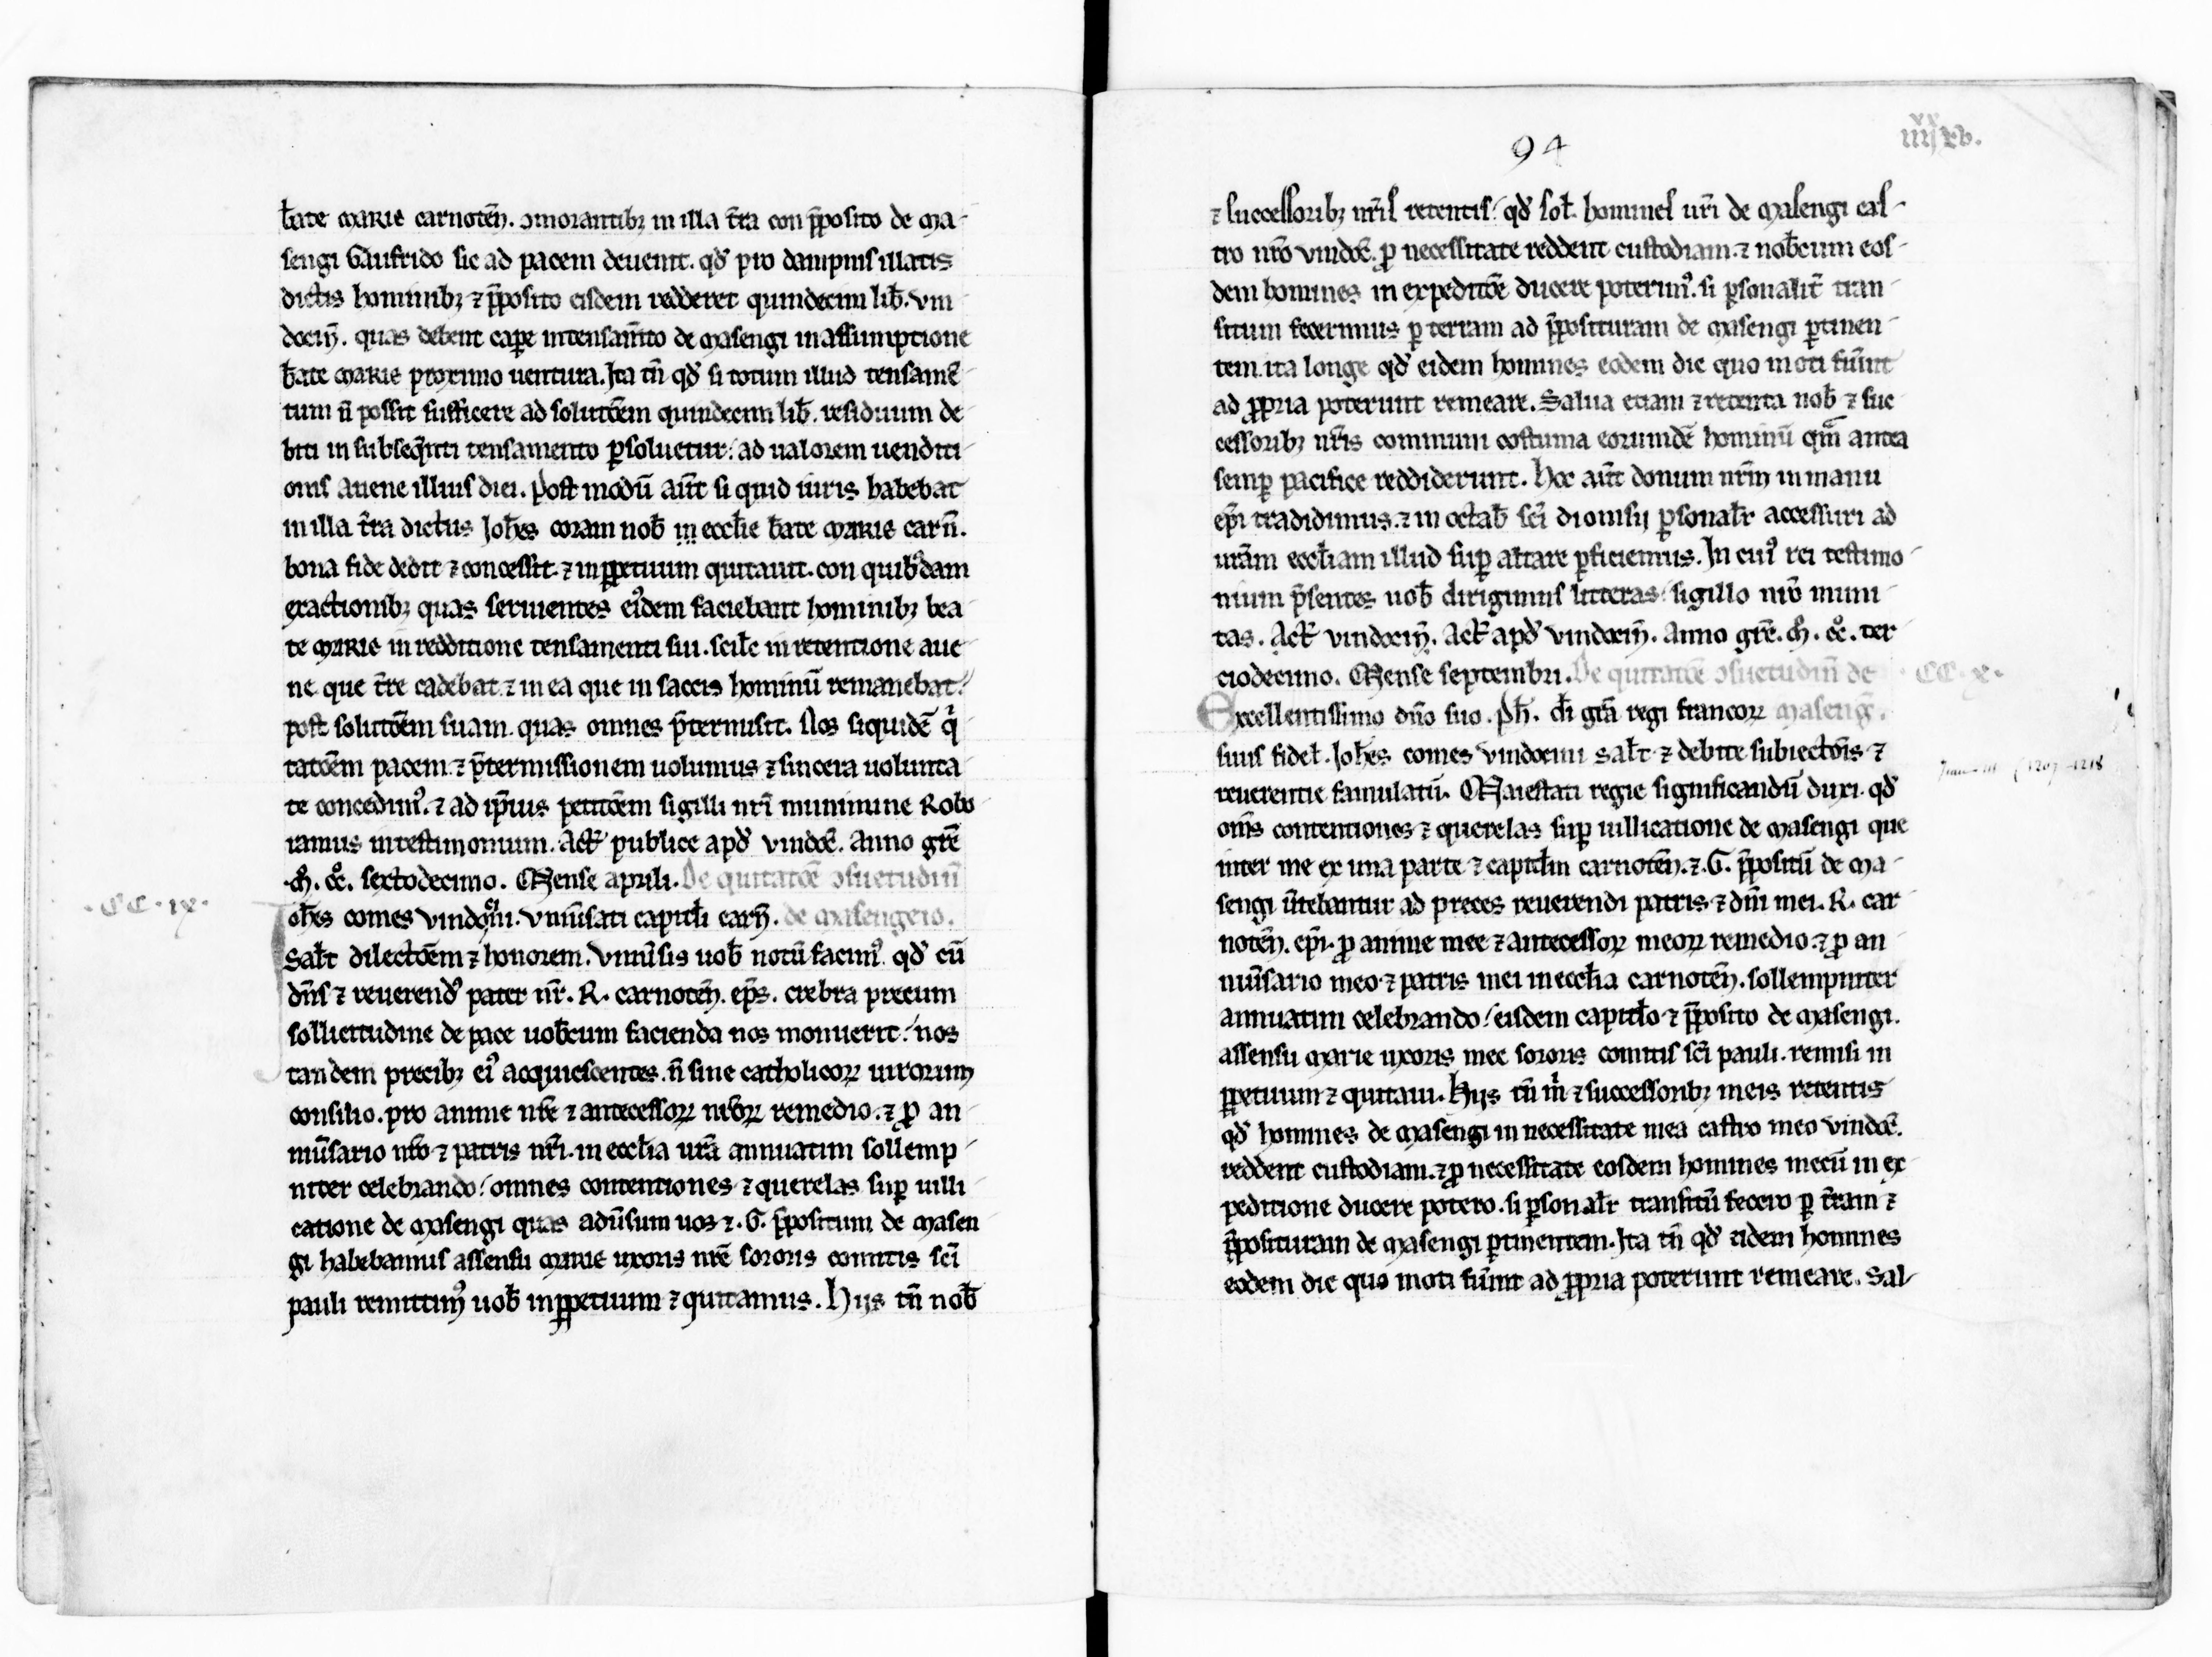 b̄ate MARIE carnoteñ. ꝯmorantibꝫ in illa t̄ra con p̄posito de Ma-
sengi Gaufrido sic ad pacem deuenit. qđ pro dampnis illatis
dictis hominibꝫ ⁊ p̄posito eisdem redderet quindecim lib̄. vin
docin̄. quas debent capꝑe in tensam̄to de Masengi in assumptione
b̄ate MARIE proximo uentura. Ita tn̄ qđ si totum illud tensam̄e-
tum n̄ possit sufficere ad solutōem quindecim lib̄. residuum de-
biti in subseq̄nti tensamento ꝑsoluetur: ad ualorem uenditi-
onis auene illius diei. Post modū aūt si quid iuris habebat
in illa t̄ra dictus Joh̄es coram nob̄ in eccl̄ie b̄ate MARIE carn̄.
bona fide dedit ⁊ concessit. ⁊ in ꝑpetuum quitauit. con quibꝰdam
exactionibꝫ quas seruientes eiꝰdem faciebant hominibꝫ bea-
te MARIE in redditione tensamenti sui. scilc̄ in retentione aue-
ne que t̄re cadebat. ⁊ in ea que in saccis hominū remanebat:
post solutōem suam. quas omnes p̄termisit. Nos siquidē qͥ
tatōem pacem ⁊ p̄termissionem uolumus ⁊ sincera uolunta-
te concedimꝰ. ⁊ ad ip̄ius petitōem sigilli nr̄i munimine Robo-
ramus in testimonium. Act̄ publice apđ vindoc̄. Anno gr̄e
.M̊. CC̊. sextodecimo. Mense aprili. De quitatōe ꝯsuetudin̄
.CC.ix.
Joh̄es comes vindocini. vniūsati capitl̄i carn̄. de Masengeio.
Sal̄t dilectōem ⁊ honorem. Vniūsis uob̄ notū facimꝰ. qđ cū
dn̄s ⁊ reuerendꝰ pater nr̄. R. carnoten̄. ep̄s. crebra precum
sollicitudine de pace uob̄cum facienda nos monuerit: nos
tandem precibꝫ eiꝰ acquiescentes. n̄ sine catholicoꝝ uirorum
consilio. pro anime nr̄e ⁊ antecessoꝝ nr̄oꝝ remedio. ⁊ ꝓ an-
niūsario nr̄o ⁊ patris nr̄i. in eccl̄ia ur̄a annuatim sollemp-
niter celebrando: omnes contentiones ⁊ querelas suꝑ uilli-
catione de Masengi quas adūsum uos ⁊ .G. p̄positum de Masen
gi habebamus assensu MARIE uxoris nr̄e sororis comitis sc̄i
pauli remittimꝰ uob̄ in ꝑpetuum ⁊ quitamus. Hijs tn̄ nob̄
94
iiijˣˣ xv.
⁊ successoribꝫ nr̄is retentis: qđ sol̄. homines ur̄i de Masengi cas-
tro nr̄o vindoc̄. ꝓ necessitate reddent custodiam. ⁊ nob̄cum eos-
dem homines in expeditōe ducere poterimꝰ. si ꝑsonalit̄ tran-
situm fecerimus ꝑ terram ad p̄posituram de Masengi ꝑtinen-
tem. ita longe qđ eidem homines eodem die quo moti fūint
ad ꝓpria poterunt remeare. Salua etiam ⁊ retenta nob̄ ⁊ suc-
cessoribꝫ nr̄is communi costuma eorumdē hominū qm̄ antea
semꝑ pacifice reddiderunt. Hoc aūt donum nr̄m in manu
ep̄i tradidimus. ⁊ in octab̄ sc̄i dionisij ꝑsonalr̄ accessuri ad
ur̄am eccl̄iam illud suꝑ altare ꝑficiemus. In cuiꝰ rei testimo-
nium p̄sentes uob̄ dirigimus litteras: sigillo nr̄o muni-
tas. Act̄ vindocin̄. Act̄ apđ vindocin̄. Anno gr̄e. M̊. CC̊. ter-
ciodecimo. Mense septembri. De quitatōe ꝯsuetudin̄ de
.CC.x.
Excellentissimo dn̄o suo. ph̄. dī gr̄a regi francoꝝ Masenḡ.
suus fidel̄. Joh̄es comes vindocini sal̄t ⁊ debite subiectōis ⁊
reuerentie famulatū. Maiestati regie significandū duxi. qđ
om̄s contentiones ⁊ querelas suꝑ uillicatione de Masengi que
inter me ex una parte ⁊ capitl̄m carnoten̄. ⁊ .G. p̄positū de Ma-
sengi ūtebantur ad preces reuerendi patris ⁊ dn̄i mei. R. car
noten̄. ep̄i. ꝓ anime mee ⁊ antecessoꝝ meoꝝ remedio. ⁊ ꝓ an-
niūsario meo ⁊ patris mei in eccl̄ia carnoten̄. sollempniter
annuatim celebrando: eisdem capitl̄o ⁊ p̄posito de Masengi.
assensu Marie uxoris mee sororis comitis sc̄i pauli. remisi in
ꝑpetuum ⁊ quitaui. Hijs tn̄ m̄ ⁊ successoribꝫ meis retentis
qđ homines de Masengi in necessitate mea castro meo vindoc̄.
reddent custodiam. ⁊ ꝓ necessitate eosdem homines mecū in ex-
peditione ducere potero. si ꝑsonalr̄ transitū fecero ꝑ t̄ram ⁊
p̄posituram de Masengi ꝑtinentem. Ita tn̄ qđ eidem homines
eodem die quo moti fūint ad ꝓpria poterunt remeare. Sal-